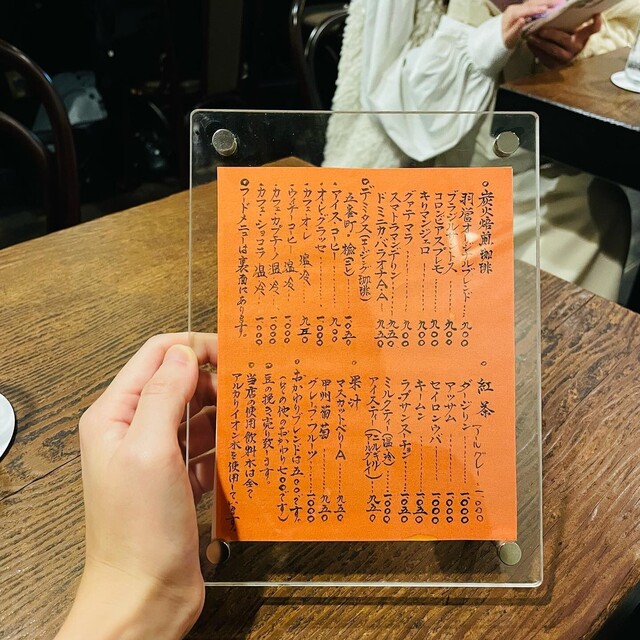 ○炭火焙煎珈琲
オリジナルブレンド……九〇〇
ブラジルサントス……九〇〇
コロンビアスプレモ……九〇〇
キリマンジェロ……九〇〇
グァテマラ……九〇〇
スマトラマンデリン……九五〇
ドミニカバラオナA・A…九五〇
○デミタス(エージング珈琲)
五番町・桧……一〇五〇
アイス・コーヒー……九〇〇
オ・レ・グラッセ……一〇〇〇
カフェ・オ・レ 温冷……九五〇
ウインナーコーヒー 温冷……一〇〇〇
カフェ・カプチーノ 温冷……一〇〇〇
カフェ・ショコラ 温冷……一〇〇〇
○フードメニューは裏面にあります。
○紅茶 アールグレー 一〇〇〇
ダージリン……一〇〇〇
アッサム……一〇〇〇
セイロンウバ……一〇〇〇
キームン……一〇五〇
ラプサンスーチョン……一〇五〇
ミルクティー(温冷)……一〇〇〇
アイスティー……九五〇
○果汁
マスカットベリーA……九五〇
甲州葡萄……九五〇
グレープフルーツ……一〇〇〇
○おかわりブレンドは五〇〇です。
(その他のおかわり七〇〇です)
○豆の挽き売り致します。
○当店の使用飲料水は全て
アルカリイオン水を使用しています。